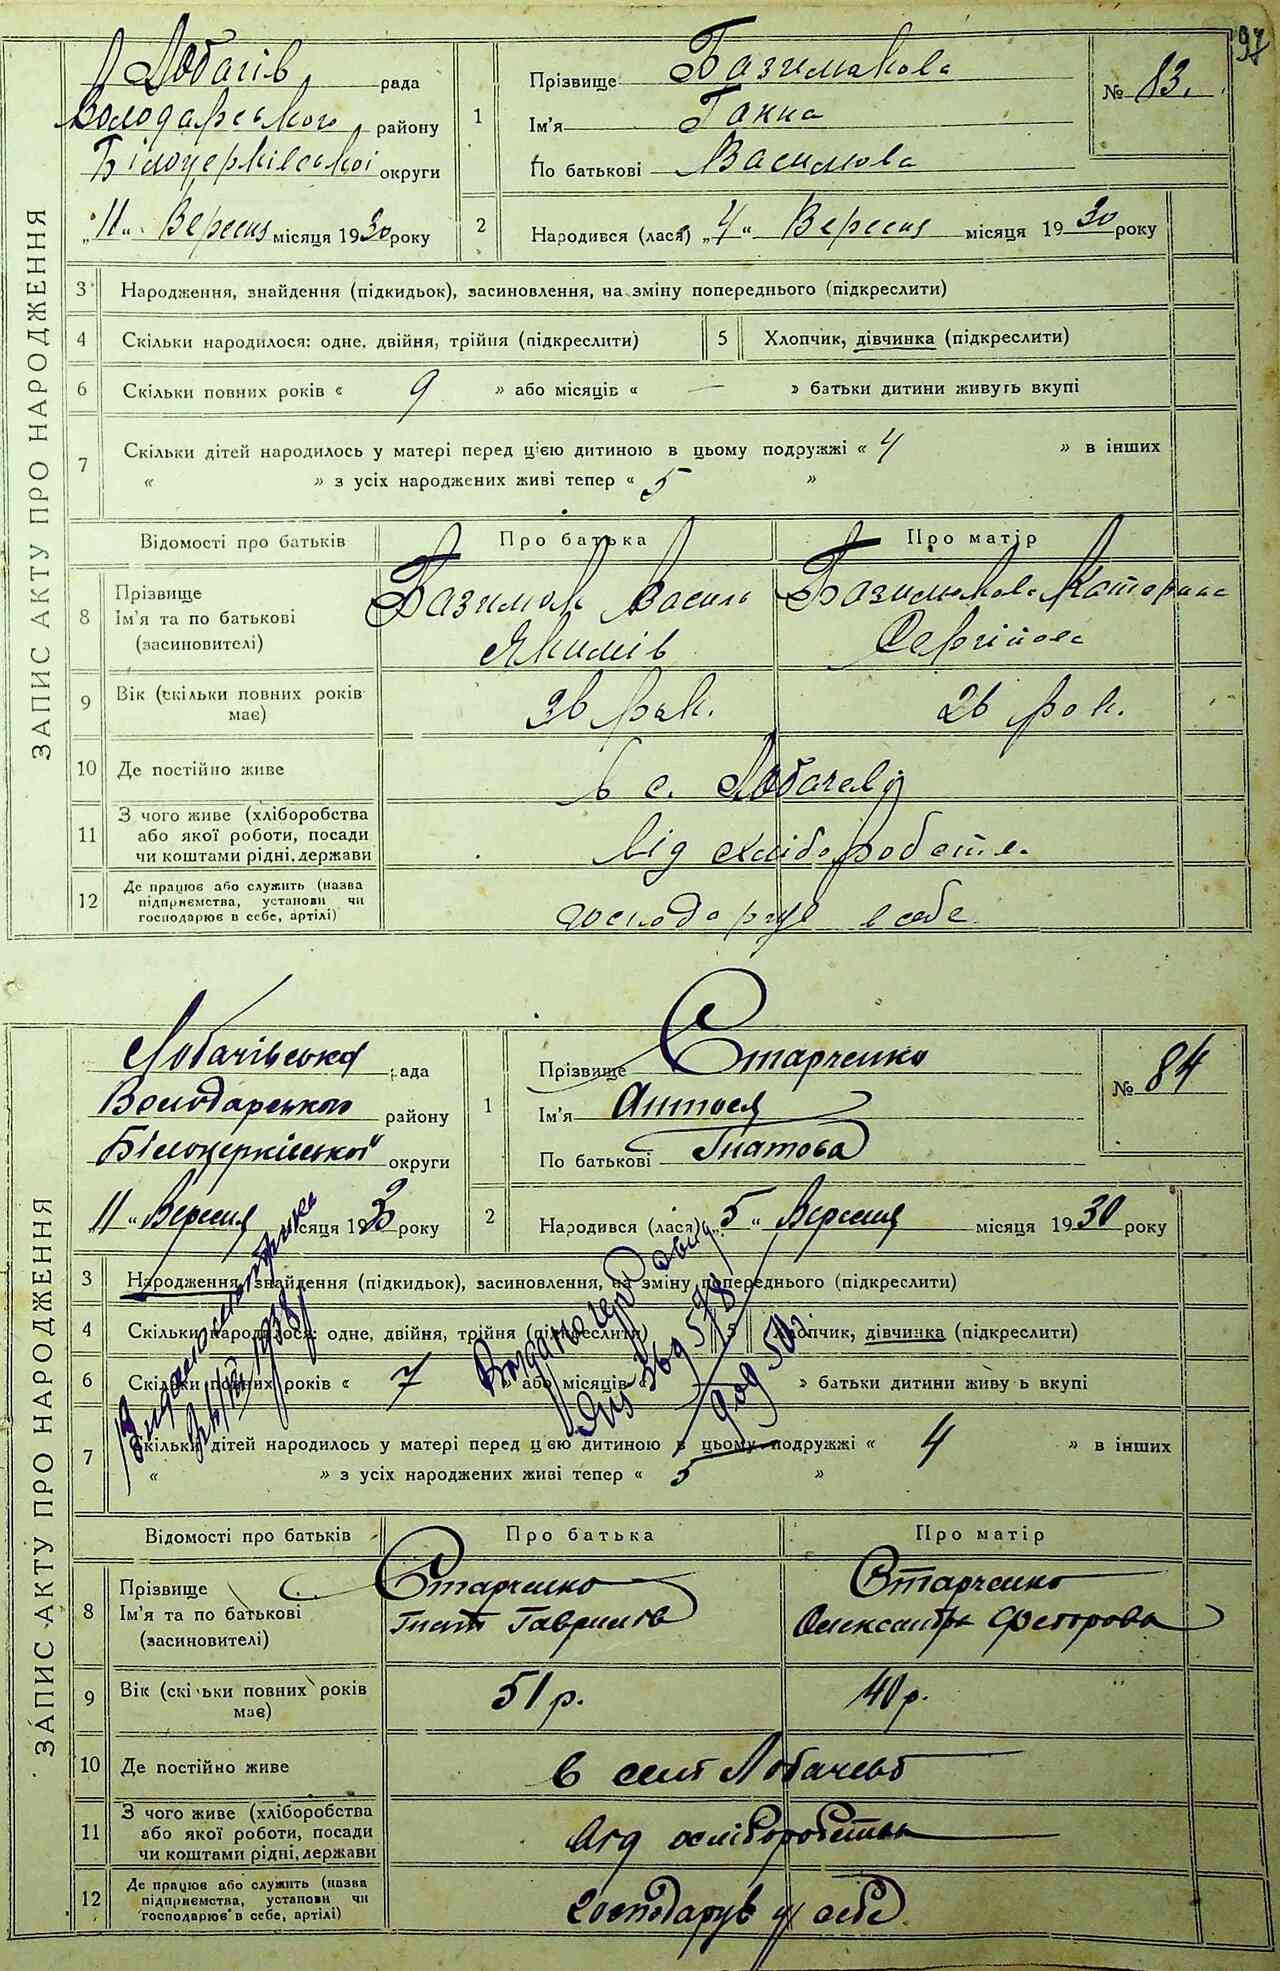 97
Лобачів рада
Володарського району
Білоцерківської округи
„11“ Вересня місяця 1930 року
1 Прізвище Базимакова
Ім'я Ганна
По батькові Василова
№ 83.
2 Народився (лася) „4“ Вересня місяця 1930 року
ЗАПИС АКТУ ПРО НАРОДЖЕННЯ
3 Народження, знайдення (підкидьок), засиновлення, на зміну попереднього (підкреслити)
4 Скільки народилося: одне, двійня, трійня (підкреслити) 5 Хлопчик, дівчинка (підкреслити)
6 Скільки повних років « 9 » або місяців « — » батьки дитини живуть вкупі
7 Скільки дітей народилось у матері перед цією дитиною в цьому подружжі « 4 » в інших
« » з усіх народжених живі тепер « 5 »
Відомості про батьків Про батька Про матір
8 Прізвище
Ім'я та по батькові
(засиновителі)
Базимак Василь
Якимів
Катерина
Сергійова
9 Вік (скільки повних років
має)
36 рок. 26 рок.
10 Де постійно живе в с. Лобачеві
11 З чого живе (хліборобства
або якої роботи, посади
чи коштами рідні, держави
від хліборобства
12 Де працює або служить (назва
підприємства, установи чи
господарює в себе, артілі)
господарує в себе
Лобачівська рада
Володарського району
Білоцерківської округи
11 „ Вересня місяця 1930 року
1 Прізвище Старченко
Ім'я Антося
По батькові Гнатова
№ 84
2 Народився (лася) „5“ Вересня місяця 1930 року
ЗАПИС АКТУ ПРО НАРОДЖЕННЯ
3 Народження, знайдення (підкидьок), засиновлення, на зміну попереднього (підкреслити)
4 Скільки народилося: одне, двійня, трійня (підкреслити) 5 Хлопчик, дівчинка (підкреслити)
6 Скільки повних років « 7 » або місяців « » батьки дитини живу ь вкупі
7 Скільки дітей народилось у матері перед цією дитиною в цьому подружжі « 4 » в інших
« » з усіх народжених живі тепер « 5 »
Відомості про батьків Про батька Про матір
8 Прізвище
Ім'я та по батькові
(засиновителі)
Старченко
Гнат Гаврилів
Старченко
Олександра Федорова
9 Вік (скільки повних років
має)
51 р. 40 р.
10 Де постійно живе в селі Лобачеві
11 З чого живе (хліборобства
або якої роботи, посади
чи коштами рідні, держави
від хліборобства
12 Де працює або служить (назва
підприємства, установи чи
господарює в себе, артілі)
господарує у себе